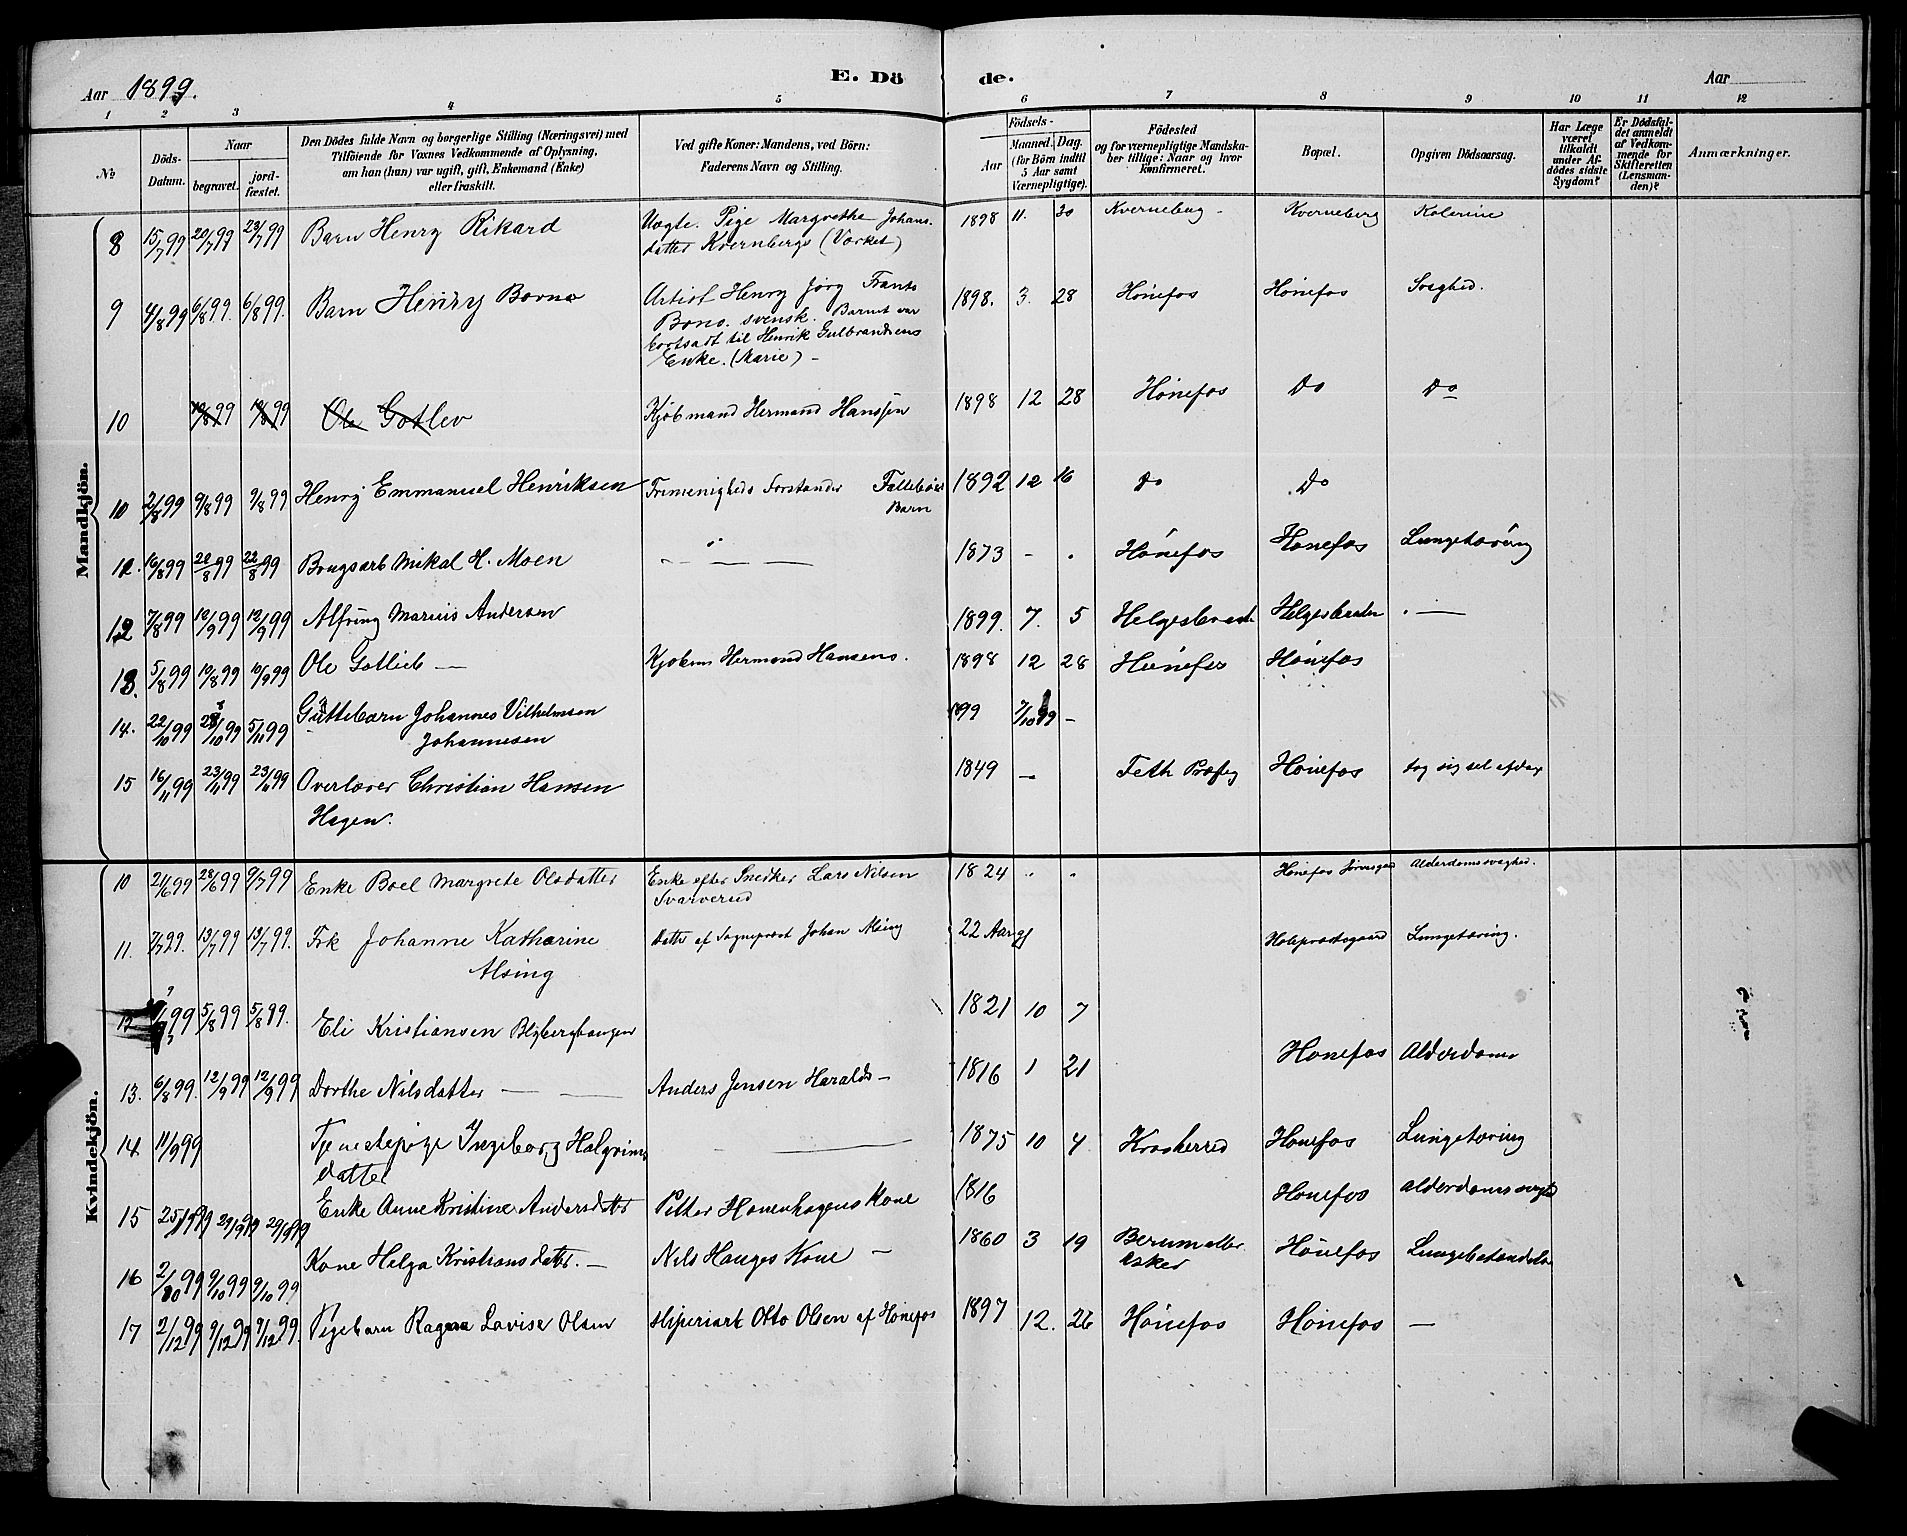 Aar 1899. E. Dö de. Aar
1 2 3 4 5 6 7 8 9 10 11 12
№ Döds-Datum. Naar begravet. jord-fæstet. Den Dödes fulde Navn og borgerlige Stilling (Næringsvei) med Tilföiende for Voxnes Vedkommende af Oplysning, om han (hun) var ugift, gift, Enkemand (Enke) eller fraskilt. Ved gifte Koner: Mandens, ved Börn: Faderens Navn og Stilling. Födsels- Aar Maaned. Dag. (for Börn indtil 5 Aar samt Værnepligtige). Födested og for værnepligtige Mandskaber tillige: Naar og hvor konfirmeret. Bopæl. Opgiven Dödsaarsag. Har Læge været tilkaldt under Afdödes sidste Sygdom? Er Dödsfaldet anmeldt af Vedkommende for Skifteretten (Lensmanden)? Anmærkninger.
Mandkjön.
8 15/7 99 20/7 99 23/7 99 Barn Henry Rikard Uægte. Pige Margrethe Johans- 1898 11. 30 Kverneberg - Kverneberg Kolerine
datter Kvernberge (Værket)
9 4/8 99 6/8 99. 6/8 99. Barn Henry Borno Artist Henry Jörg Frants 1898. 3. 28 Hönefos Hönefos Svaghed.
Bono. svensk. Barnet var
bortsadt til Henrik Gulbrandsens
Enke. (Marie) -
10 10/8 99 10/8 99 Ole Gotlev Kjöbmand Hermand Hanssen 1898 12 28 Hönefos Do Do
10 2/8 99 9/8 99 9/8 99 Henry Emmanuel Henriksen Frimenigheds Forstander 1892 12 16 Do Do
Barn
16/8 99 22/8 99 22/8 99 Mikal H. Moen 1873 - . Hönefos Hönefos Lungetæring
12 7/8 99 12/9 99 12/9 99 Marius Andersen 1899. 7. 5
13. 5/8 99 10/8 99 10/8 99 Ole Gotlieb — Hermand Hansens. 1898 12 28 Hönefos Hönefos
14. 22/10 99 5/11 99 Guttebarn Johannes Vilhelmsen 7/10 99 -
Johannesen
15 16/11 99 23/11 99 23/11 99 Overlærer Christian Hansen 1849 - Hönefos tog sig
Hagen.
Kvindekjön.
10 21/6 99 28/6 99 9/7 99 Enke Boel Margrete Olsdatter Enke efter Snedker Lars Nilsen 1824 Alderdomssvaghed.
Svarverud
11. 7/7 99. 13/7 99 13/7 99. Frk Johanne Katharine Datter af Sogneprest Johan Alsing 22 Aar gl Lungetæring.
Alsing
12 5/8 99 5/8 99. Eli Kristiansen 1821 10 7
13. 6/8 99. 12/9 99 12/9 99 Dorthe Nilsdatter — Anders Jensen Haralds - 1816 1 21 Hönefos Alderdoms
14 11/9 99 Tjenestepige Ingeborg Halgrims 1875 10 4 Krødsherred Hönefos Lungetæring
datter
15 Enke Anne Kristine Andersdatter Petter Hönenhagens Kone 1816 Hönefos
16 2/10 99 9/10 99 9/10 99 Kone Helga Kristiansdatter. - Nils Hauges Kone - 1860 3 19 Hönefos Lungebetændelse
Asker
17 2/12 99 9/12 99 9/12 99. Pigebarn Ragna Lovise Olsen Otto Olsen af Hönefos 1897 12. 26 Hönefos Hönefos —